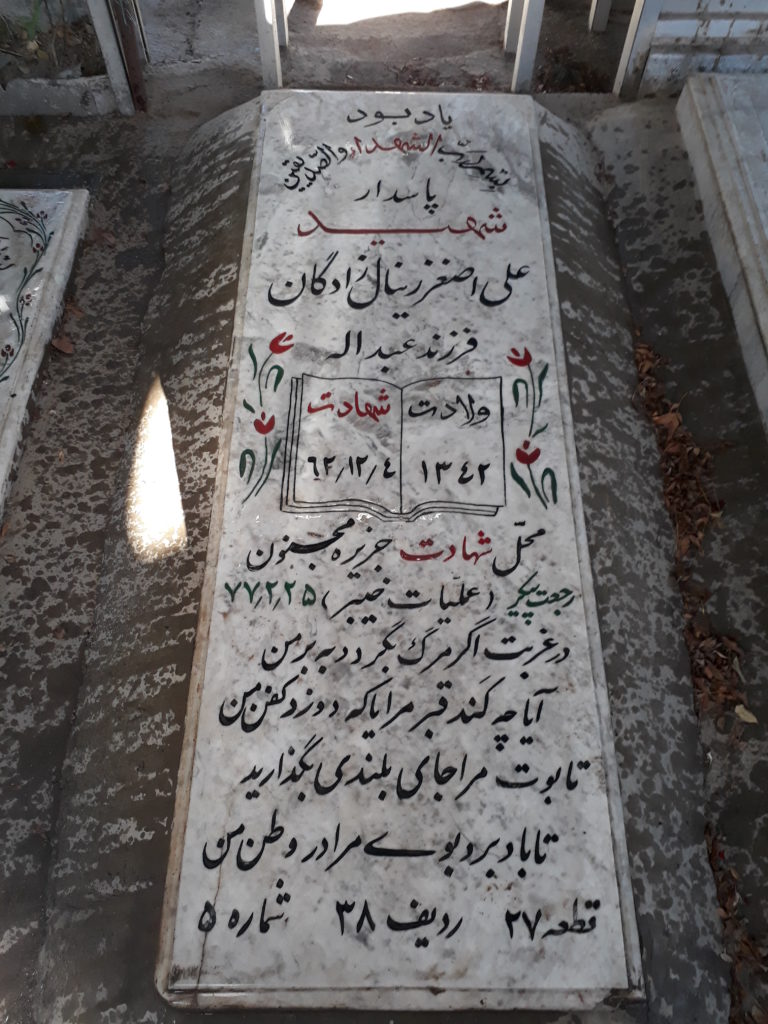 یادبود
بسم رب الشهداء والصدیقین
پاسدار
شهید
علی اصغر زینال زادگان
فرزند عبداله
ولادت شهادت
۱۳٤۲ ٦۲/۱۲/٤
محلّ شهادت جزیره مجنون
رجعت پیکر (عملیات خیبر) ۷۷/۲/۲۵
در غربت اگر مرگ بگیرد به بر من
آیا چه کَند قبر مرا یا که دوزد کفن من
تابوت مرا جای بلندی بگذارید
تا باد برد بوے مرا در وطن من
قطعه ۲۷ ردیف ۳۸ شماره ۵